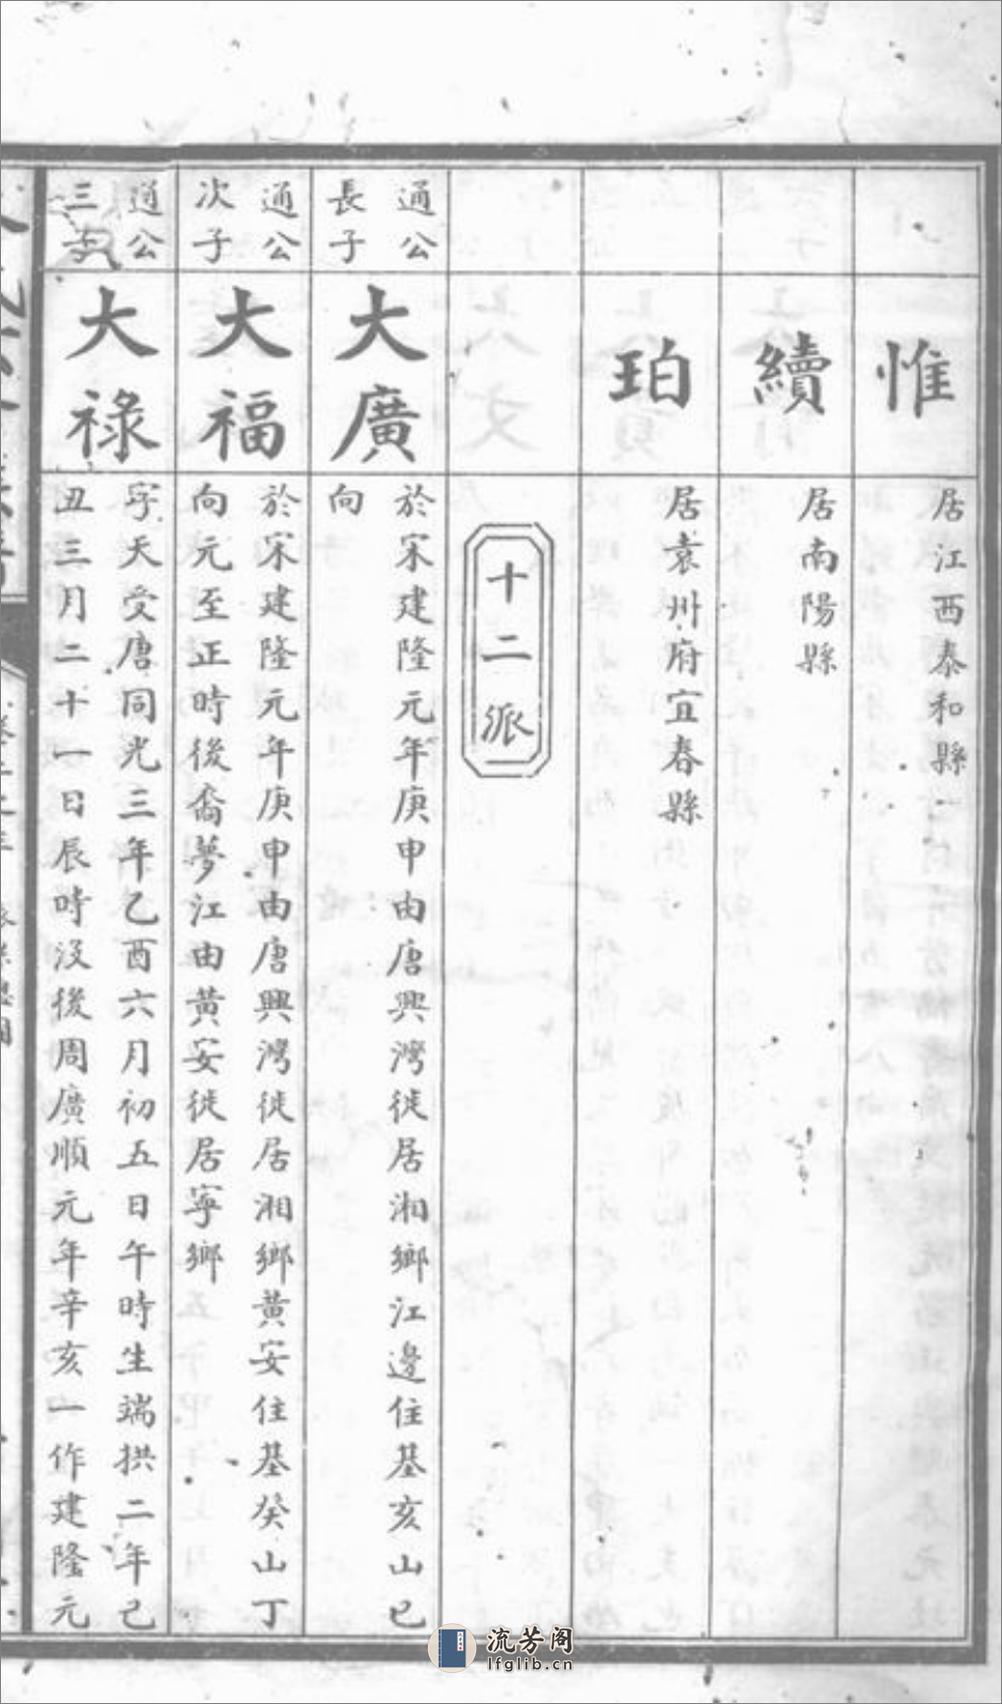 惟
居江西泰和縣
續
居南陽縣
珀
居袁州府宜春縣
十二派
通公
長子
大廣
於宋建隆元年庚申由唐興灣徙居湘鄉江邊住基亥山巳
向
通公
次子
大福
於宋建隆元年庚申由唐興灣徙居湘鄉黃安住基癸山丁
向元至正時後裔夢江由黃安徙居寧鄉
通公
三子
大祿
字天受唐同光三年乙酉六月初五日午時生端拱二年己
丑三月二十一日辰時沒後周廣順元年辛亥一作建隆元
流芳阁
lfglib.cn